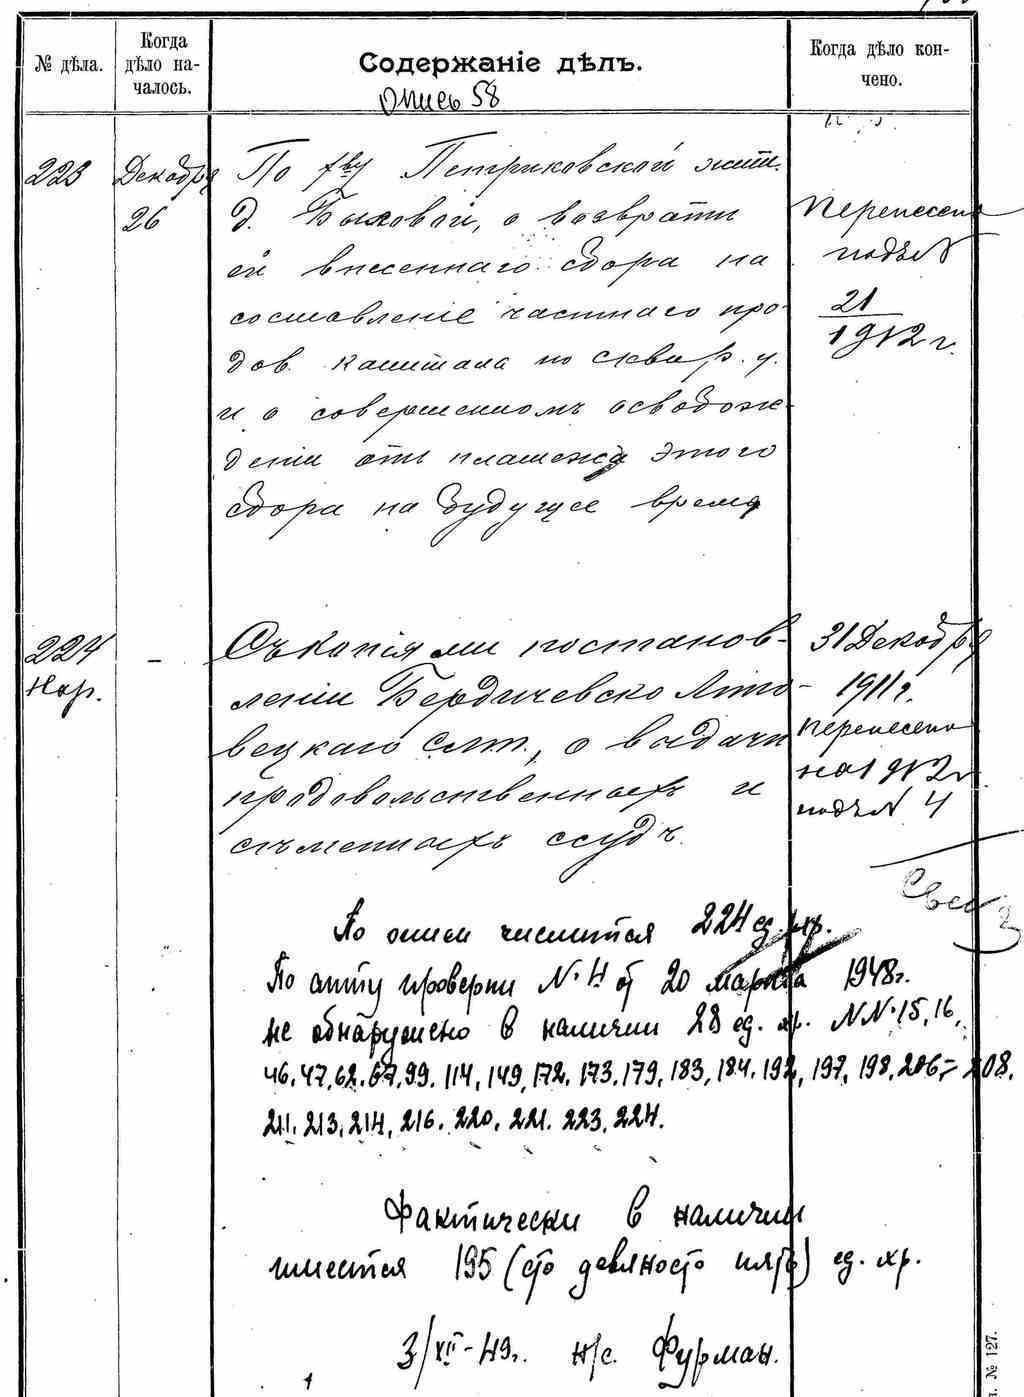 № дѣла.
Когда
дѣло на-
чалось.
Содержаніе дѣлъ.
Опись 58
Когда дѣло кон-
чено.
223
Декабря
26
По Петриковской жит.
д. Быховой, о возвратѣ
ей внесеннаго сбора на
составленіе частнаго про-
дов. капитала по Сквир. у.
и о совершенномъ освобож-
деніи отъ платежа этого
сбора на будущее время
Перенесено
подъ №
21
1912 г.
224
Нар.
-
Съ копіями постанов-
леній Бердичевско
вецкаго о выдачи
продовольственныхъ и
сѣменныхъ ссудъ.
31 Декабря
1911 г.
перенесено
на 1912 г
подъ № 4
По описи числится 224 ед. хр.
По акту проверки №. 4 от 20 марта 1948 г.
не обнаружено в наличии 28 ед. хр. №№. 15, 16,
46. 47, 62. 67, 99. 114, 149, 172. 173. 179, 183, 184. 192, 197, 198, 206, - 208,
211. 213, 214, 216. 220, 221. 223. 224.
Фактически в наличии
имеется 195 (сто девяносто пять) ед. хр.
3/XII-49г. н/с. Фурман.
№ 127.